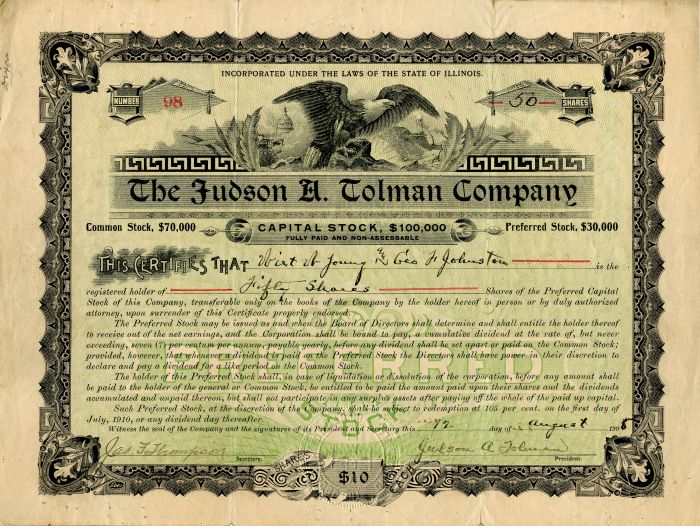 INCORPORATED UNDER THE LAWS OF THE STATE OF ILLINOIS.
NUMBER 98
50 SHARES
The Judson A. Tolman Company
Common Stock, $70,000
CAPITAL STOCK, $100,000
FULLY PAID AND NON-ASSESSABLE
Preferred Stock, $30,000
THIS CERTIFIES THAT Wirt W Young & Geo F Johnston is the
registered holder of Fifty Shares Shares of the Preferred Capital
Stock of this Company, transferable only on the books of the Company by the holder hereof in person or by duly authorized
attorney, upon surrender of this Certificate properly endorsed.
The Preferred Stock may be issued as and when the Board of Directors shall determine and shall entitle the holder thereof
to receive out of the net earnings, and the Corporation shall be bound to pay, a cumulative dividend at the rate of, but never
exceeding, seven (7) per centum per annum, payable yearly, before any dividend shall be set apart or paid on the Common Stock;
provided, however, that whenever a dividend is paid on the Preferred Stock the Directors shall have power in their discretion to
declare and pay a dividend for a like period on the Common Stock.
The holder of this Preferred Stock shall, in case of liquidation or dissolution of the corporation, before any amount shall
be paid to the holder of the general or Common Stock, be entitled to be paid the amount paid upon their shares and the dividends
accumulated and unpaid thereon, but shall not participate in any surplus assets after paying off the whole of the paid up capital.
Such Preferred Stock, at the discretion of the Company, shall be subject to redemption at 105 per cent. on the first day of
July, 1910, or any dividend day thereafter.
Witness the seal of the Company and the signatures of its President and Secretary this 12 day of August 1908
Jas. T. Thompson
Secretary.
Judson A Tolman
President.
SHARES $10 EACH
PREFERRED
STOCK